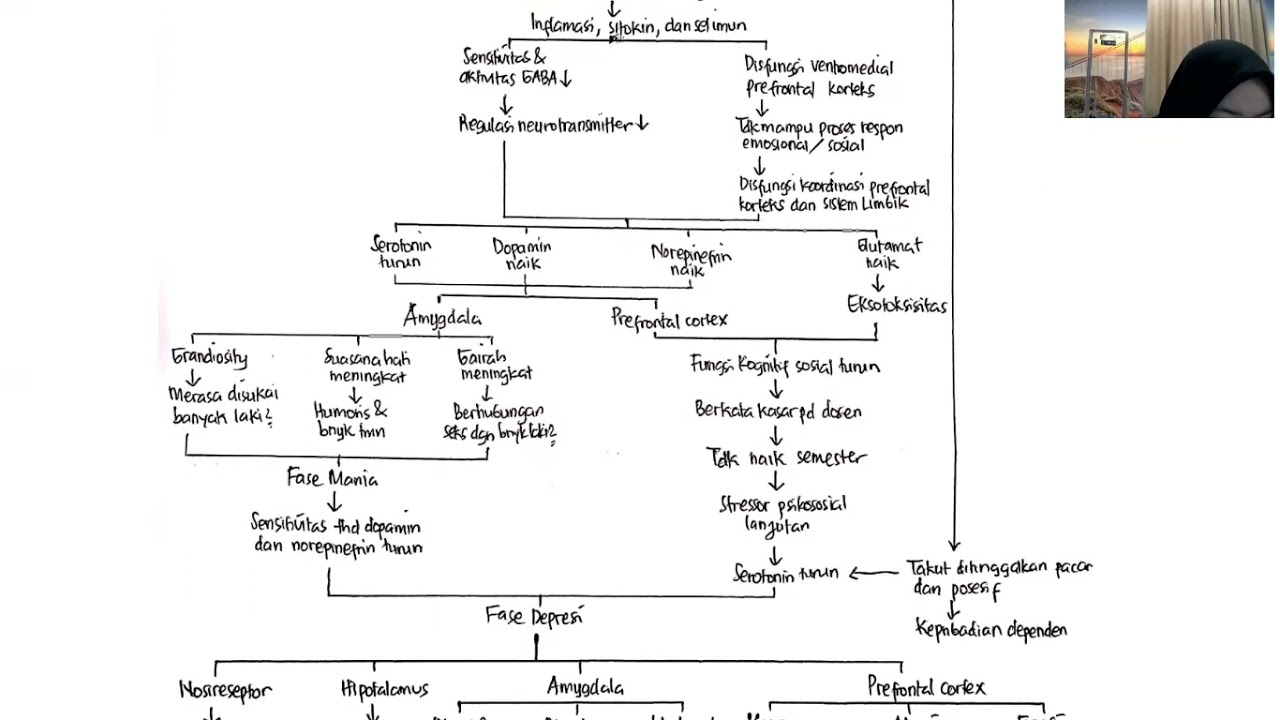 Inflamasi, sitokin, dan sel imun
Sensitivitas &
aktivitas GABA↓
Disfungsi ventromedial
prefrontal korteks
Regulasi neurotransmitter ↓
Tdk mampu proses respon
emosional / sosial
Disfungsi koordinasi prefrontal
korteks dan sistem Limbik
Serotonin
turun
Dopamin
naik
Norepinefrin
naik
Glutamat
naik
Eksotoksisitas
Amygdala
Prefrontal cortex
Grandiosity
Suasana hati
meningkat
Gairah
meningkat
Fungsi Kognitif sosial turun
Merasa disukai
banyak laki2
Humoris &
bnyk tmn
Berhubungan
seks dgn bnyk laki2
Berkata kasar pd dosen
Tdk naik semester
Fase Mania
Stressor psikososial
lanjutan
Sensitivitas thd dopamin
dan norepinefrin turun
Serotonin turun
Takut ditinggalkan pacar
dan posesif
Kepribadian dependen
Fase Depresi
Nosireseptor
Hipotalamus
Amygdala
Prefrontal cortex